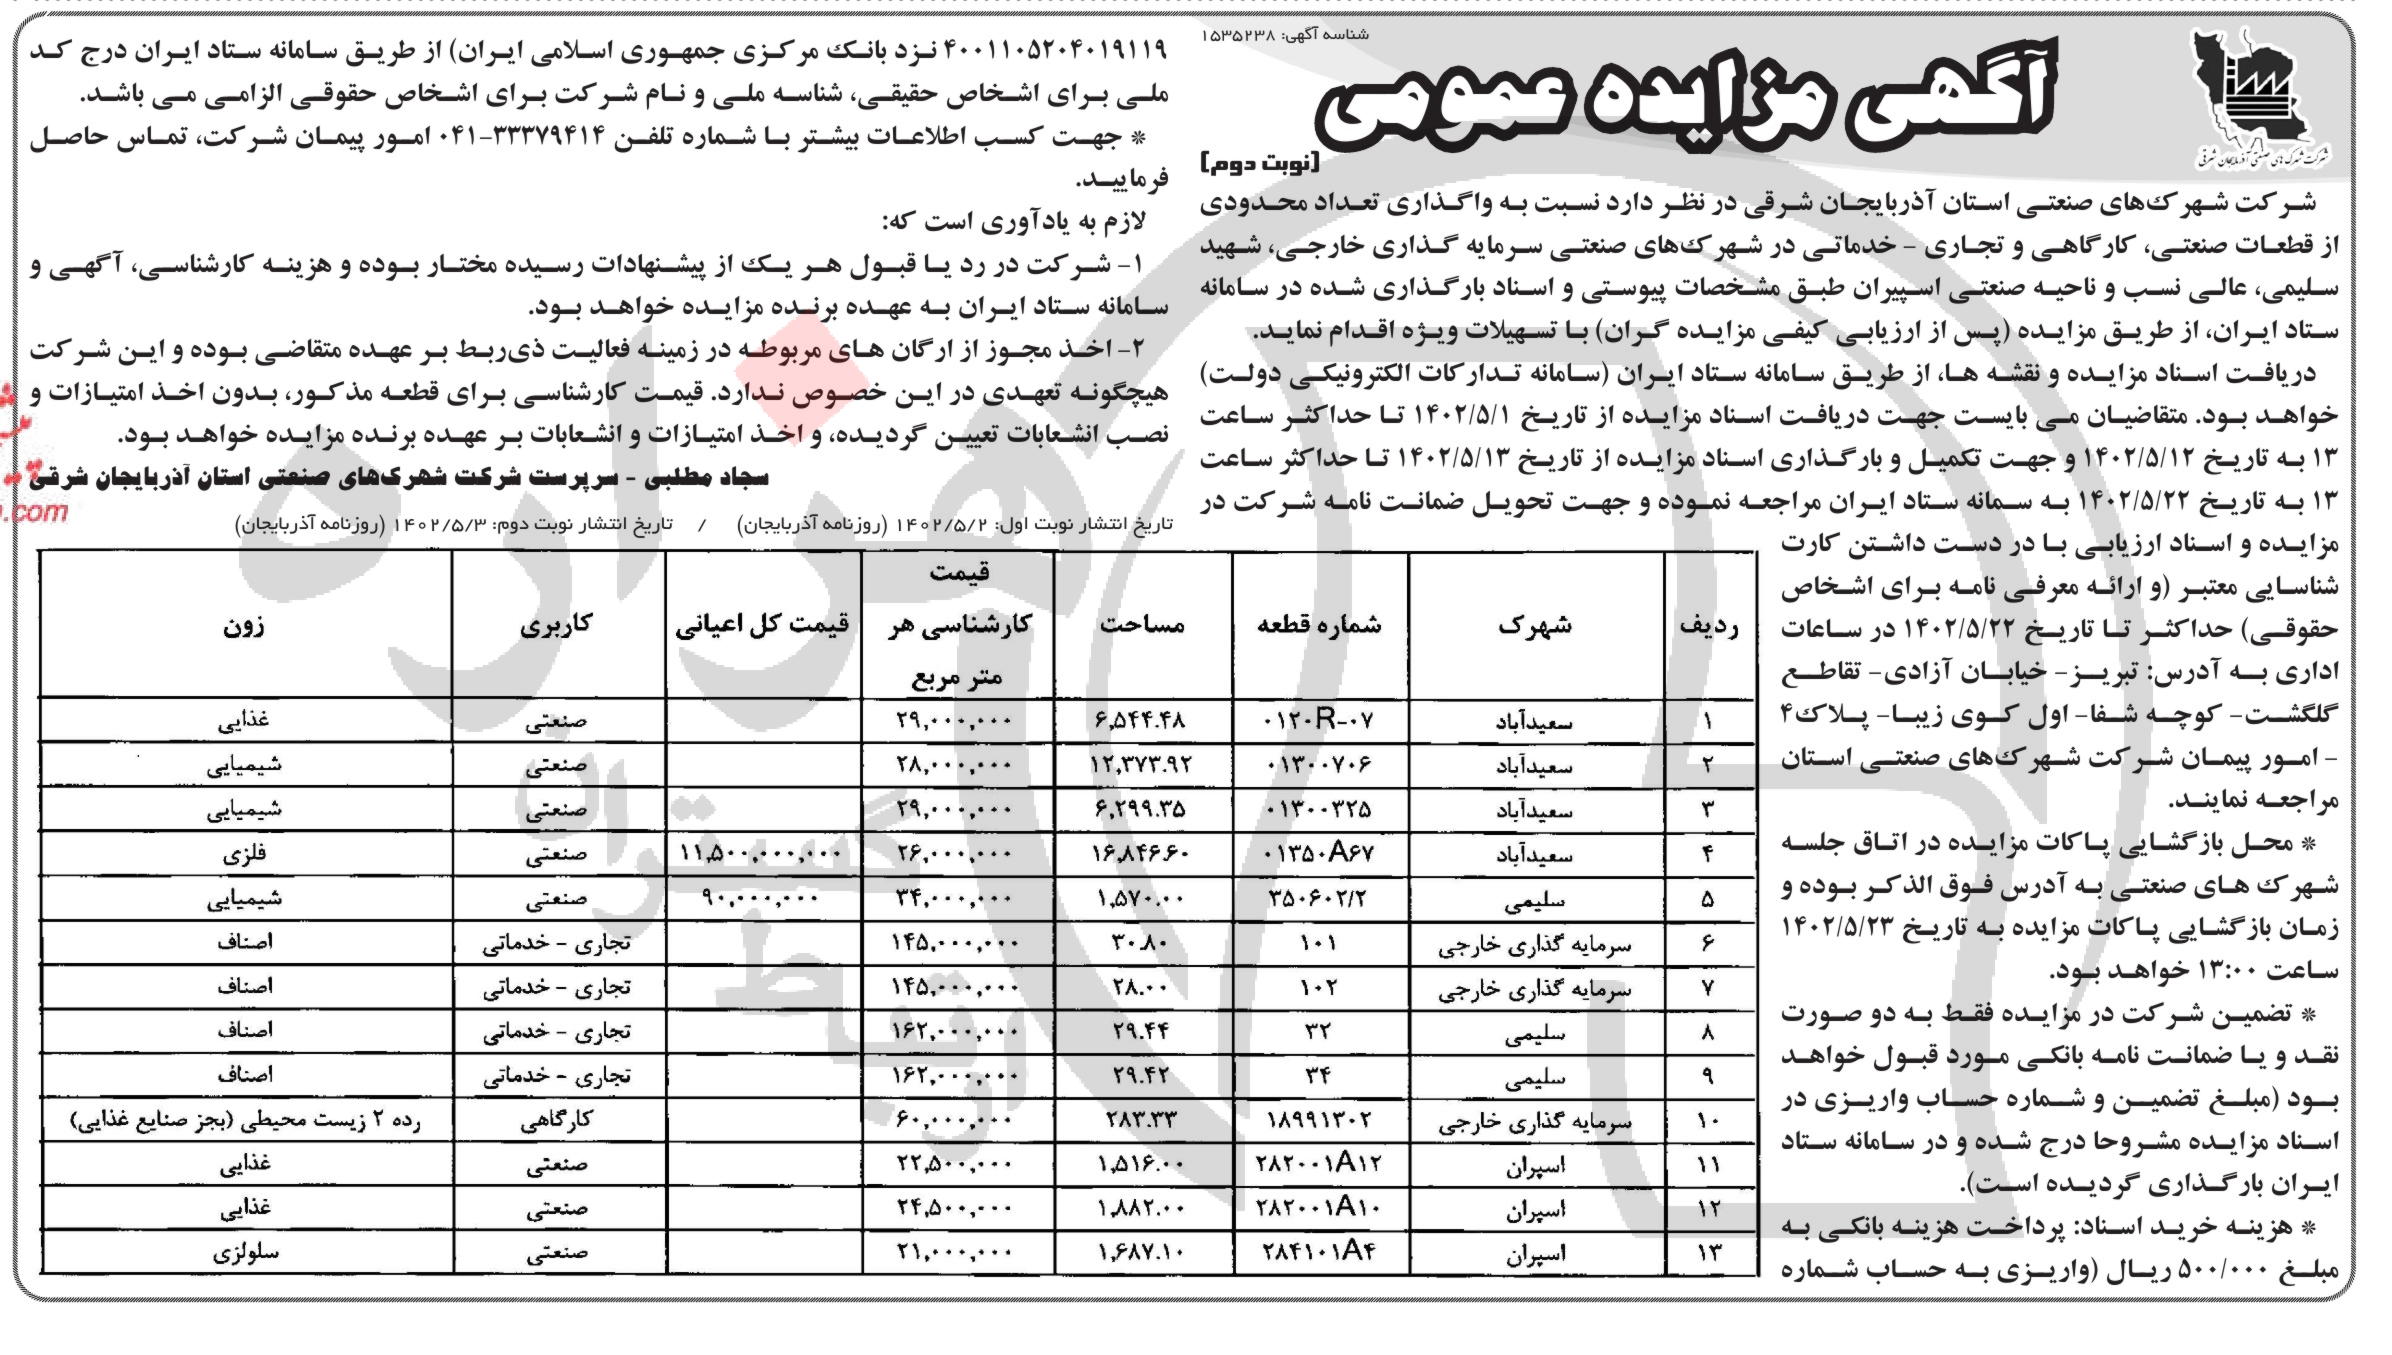 شناسه آگهی: ۱۵۳۵۲۳۸
آگهی مزایده عمومی
[نوبت دوم]
شرکت شهرک های صنعتی آذربایجان شرقی
شرکت شهرک‌های صنعتی استان آذربایجان شرقی در نظر دارد نسبت به واگذاری تعداد محدودی
از قطعات صنعتی، کارگاهی و تجاری - خدماتی در شهرک‌های صنعتی سرمایه گذاری خارجی، شهید
سلیمی، عالی نسب و ناحیه صنعتی اسپیران طبق مشخصات پیوستی و اسناد بارگذاری شده در سامانه
ستاد ایران، از طریق مزایده (پس از ارزیابی کیفی مزایده گران) با تسهیلات ویژه اقدام نماید.
دریافت اسناد مزایده و نقشه ها، از طریق سامانه ستاد ایران (سامانه تدارکات الکترونیکی دولت)
خواهد بود. متقاضیان می بایست جهت دریافت اسناد مزایده از تاریخ ۱۴۰۲/۵/۱ تا حداکثر ساعت
۱۳ به تاریخ ۱۴۰۲/۵/۱۲ و جهت تکمیل و بارگذاری اسناد مزایده از تاریخ ۱۴۰۲/۵/۱۳ تا حداکثر ساعت
۱۳ به تاریخ ۱۴۰۲/۵/۲۲ به سمانه ستاد ایران مراجعه نموده و جهت تحویل ضمانت نامه شرکت در
مزایده و اسناد ارزیابی با در دست داشتن کارت
شناسایی معتبر (و ارائه معرفی نامه برای اشخاص
حقوقی) حداکثر تا تاریخ ۱۴۰۲/۵/۲۲ در ساعات
اداری به آدرس: تبریز- خیابان آزادی- تقاطع
گلگشت- کوچه شفا- اول کوی زیبا- پلاک۴
- امور پیمان شرکت شهرک‌های صنعتی استان
مراجعه نمایند.
* محل بازگشایی پاکات مزایده در اتاق جلسه
شهرک های صنعتی به آدرس فوق الذکر بوده و
زمان بازگشایی پاکات مزایده به تاریخ ۱۴۰۲/۵/۲۳
ساعت ۱۳:۰۰ خواهد بود.
* تضمین شرکت در مزایده فقط به دو صورت
نقد و یا ضمانت نامه بانکی مورد قبول خواهد
بود (مبلغ تضمین و شماره حساب واریزی در
اسناد مزایده مشروحا درج شده و در سامانه ستاد
ایران بارگذاری گردیده است).
* هزینه خرید اسناد: پرداخت هزینه بانکی به
مبلغ ۵۰۰/۰۰۰ ریال (واریزی به حساب شماره
۴۰۰۱۱۰۵۲۰۴۰۱۹۱۱۹ نزد بانک مرکزی جمهوری اسلامی ایران) از طریق سامانه ستاد ایران درج کد
ملی برای اشخاص حقیقی، شناسه ملی و نام شرکت برای اشخاص حقوقی الزامی می باشد.
* جهت کسب اطلاعات بیشتر با شماره تلفن ۳۳۳۷۹۴۱۴-۰۴۱ امور پیمان شرکت، تماس حاصل
فرمایید.
لازم به یادآوری است که:
۱- شرکت در رد یا قبول هر یک از پیشنهادات رسیده مختار بوده و هزینه کارشناسی، آگهی و
سامانه ستاد ایران به عهده برنده مزایده خواهد بود.
۲- اخذ مجوز از ارگان های مربوطه در زمینه فعالیت ذی‌ربط بر عهده متقاضی بوده و این شرکت
هیچگونه تعهدی در این خصوص ندارد. قیمت کارشناسی برای قطعه مذکور، بدون اخذ امتیازات و
نصب انشعابات تعیین گردیده، و اخذ امتیازات و انشعابات بر عهده برنده مزایده خواهد بود.
سجاد مطلبی - سرپرست شرکت شهرک‌های صنعتی استان آذربایجان شرقی
تاریخ انتشار نوبت اول: ۱۴۰۲/۵/۲ (روزنامه آذربایجان) / تاریخ انتشار نوبت دوم: ۱۴۰۲/۵/۳ (روزنامه آذربایجان)
ردیف شهرک شماره قطعه مساحت قیمت کارشناسی هر متر مربع قیمت کل اعیانی کاربری زون
۱ سعیدآباد ۰۱۲۰R-۰۷ ۶,۵۴۴.۴۸ ۲۹,۰۰۰,۰۰۰ صنعتی غذایی
۲ سعیدآباد ۰۱۳۰۰۷۰۶ ۱۲,۳۷۳.۹۲ ۲۸,۰۰۰,۰۰۰ صنعتی شیمیایی
۳ سعیدآباد ۰۱۳۰۰۳۲۵ ۶,۲۹۹.۳۵ ۲۹,۰۰۰,۰۰۰ صنعتی شیمیایی
۴ سعیدآباد ۰۱۳۵۰A۶۷ ۱۶,۸۴۶.۶۰ ۲۶,۰۰۰,۰۰۰ ۱۱,۵۰۰,۰۰۰,۰۰۰ صنعتی فلزی
۵ سلیمی ۳۵۰۶۰۲/۲ ۱,۵۷۰.۰۰ ۳۴,۰۰۰,۰۰۰ ۹۰,۰۰۰,۰۰۰ صنعتی شیمیایی
۶ سرمایه گذاری خارجی ۱۰۱ ۳۰.۸۰ ۱۴۵,۰۰۰,۰۰۰ تجاری - خدماتی اصناف
۷ سرمایه گذاری خارجی ۱۰۲ ۲۸.۰۰ ۱۴۵,۰۰۰,۰۰۰ تجاری - خدماتی اصناف
۸ سلیمی ۳۲ ۲۹.۴۴ ۱۶۲,۰۰۰,۰۰۰ تجاری - خدماتی اصناف
۹ سلیمی ۳۴ ۲۹.۴۲ ۱۶۲,۰۰۰,۰۰۰ تجاری - خدماتی اصناف
۱۰ سرمایه گذاری خارجی ۱۸۹۹۱۳۰۲ ۲۸۳.۳۳ ۶۰,۰۰۰,۰۰۰ کارگاهی رده ۲ زیست محیطی (بجز صنایع غذایی)
۱۱ اسپران ۲۸۲۰۰۱A۱۲ ۱,۵۱۶.۰۰ ۲۲,۵۰۰,۰۰۰ صنعتی غذایی
۱۲ اسپران ۲۸۲۰۰۱A۱۰ ۱,۸۸۲.۰۰ ۲۴,۵۰۰,۰۰۰ صنعتی غذایی
۱۳ اسپران ۲۸۴۱۰۱A۴ ۱,۶۸۷.۱۰ ۲۱,۰۰۰,۰۰۰ صنعتی سلولزی
هزاره
گستران
ارتباط
.com